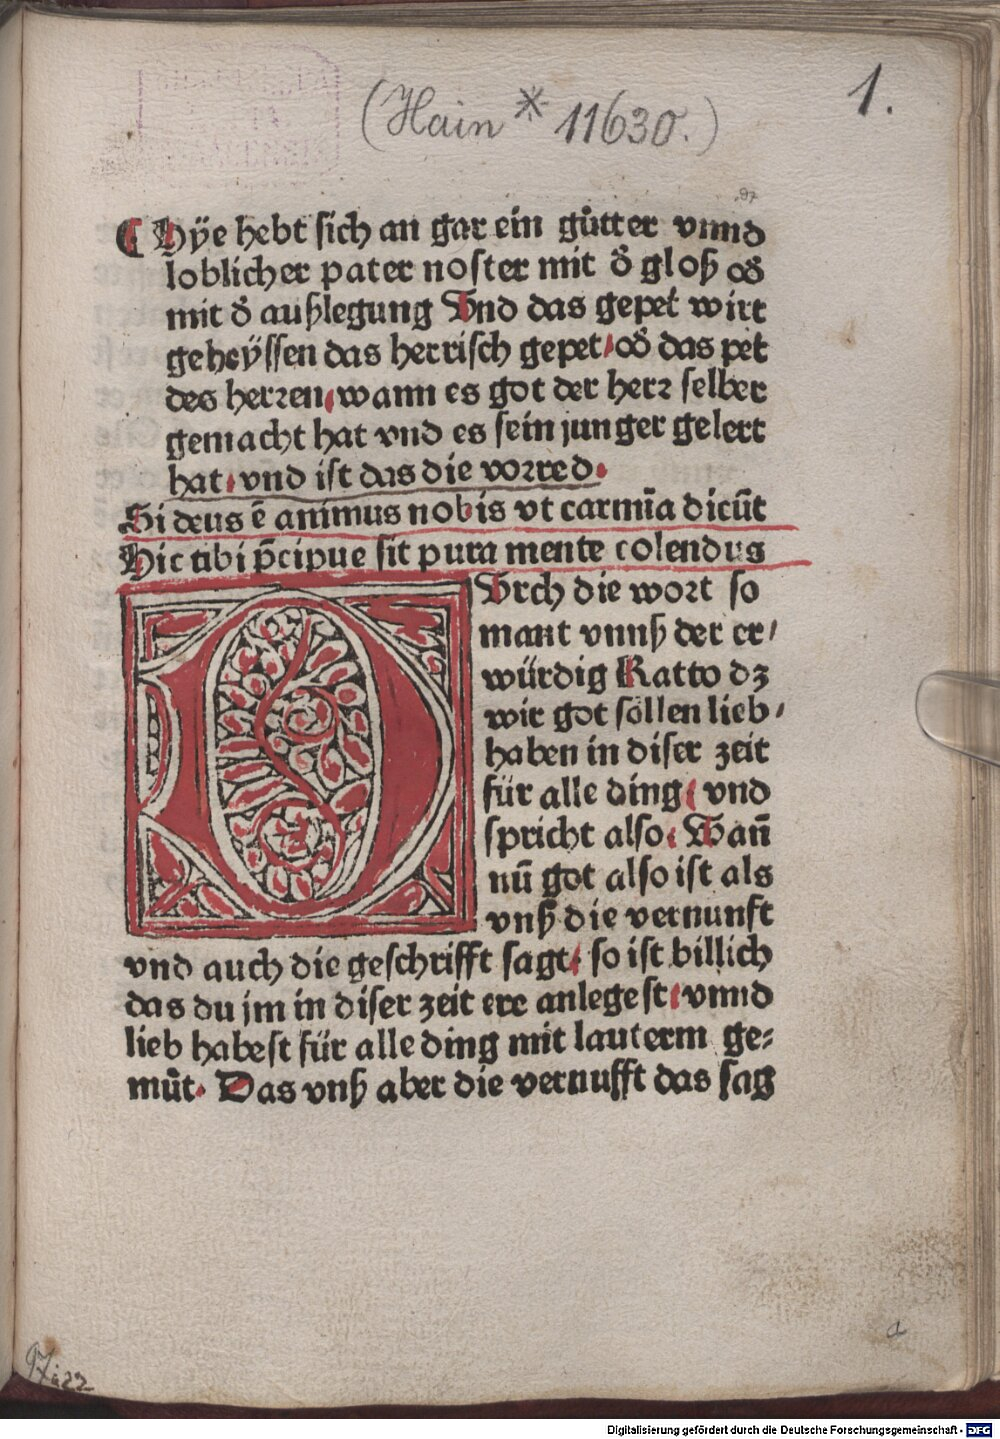 (Hain * 11630.)
1.
¶ Hÿe hebt sich an gar ein gůtter vnnd
loblicher pater noster mit d̕ gloß od̕
mit d̕ außlegung Vnd das gepet wirt
geheÿssen das herrisch gepet· od̕ das pet
des herren· wann es got der herr selber
gemacht hat vnd es sein junger gelert
hat· vnd ist das die vorred·
Si deus ē animus nobis vt carmīa dicūt
Hic tibi p̄cipue sit pura mente colendus
DVrch die wort so
mant vnnß der er/
würdig Katto dz
wir got söllen lieb/
haben in diser zeit
für alle ding· vnd
spricht also· Wañ
nū got also ist als
vnß die vernunft
vnd auch die geschrifft sagt· so ist billich
das du jm in diser zeit ere anlegest· vnnd
lieb habest für alle ding mit lauterm ge⸗
müt· Das vnß aber die vernufft das sag
a
Digitalisierung gefördert durch die Deutsche Forschungsgemeinschaft - DFG